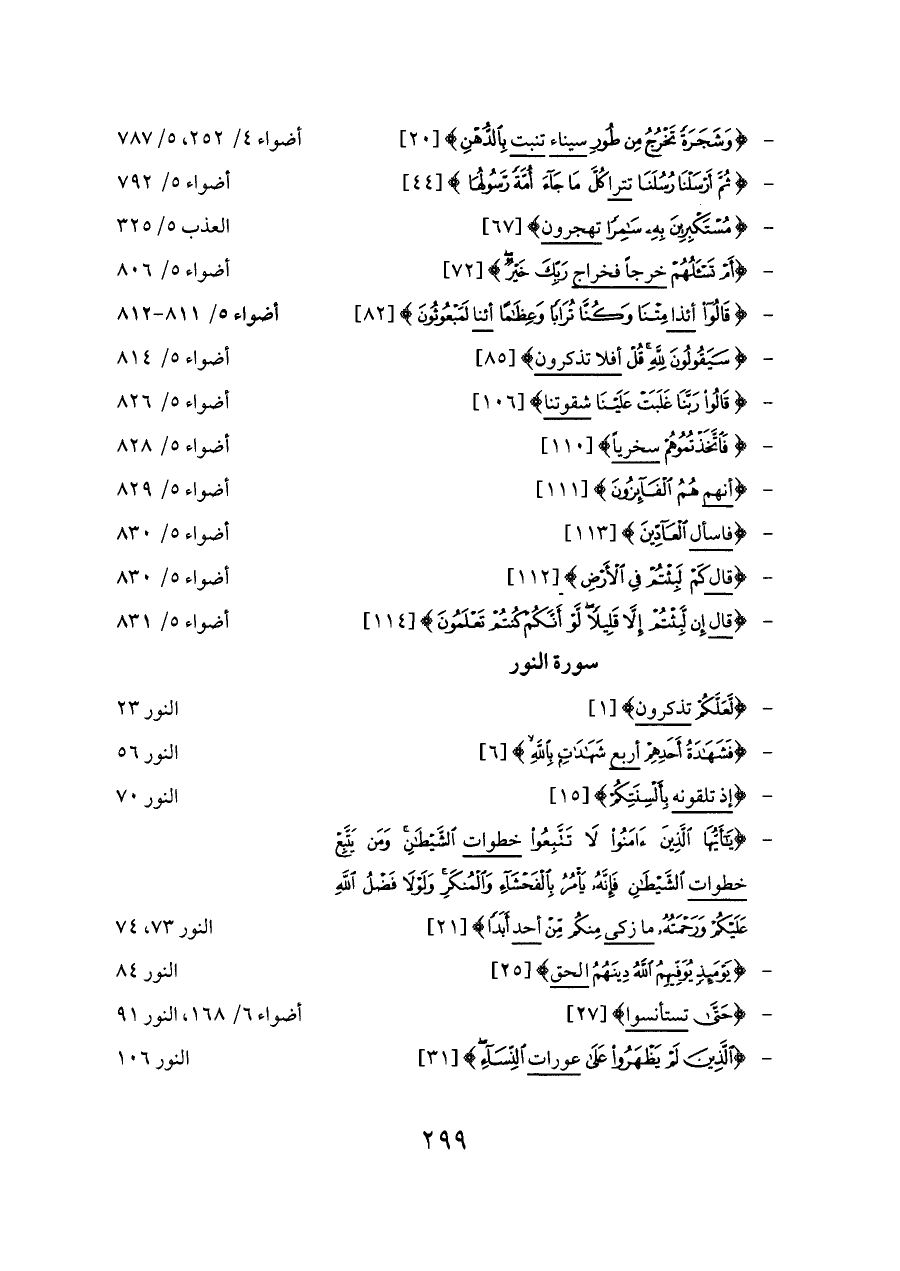 - ﴿وَشَجَرَةً تَخْرُجُ مِن طُورِ سيناء تنبت بِالدُّهْنِ﴾ [٢٠] أضواء ٤/ ٢٥٢، ٥/ ٧٨٧
- ﴿ثُمَّ أَرْسَلْنَا رُسُلَنَا تترا كُلَّ مَا جَاءَ أُمَّةً رَّسُولُهَا﴾ [٤٤] أضواء ٥/ ٧٩٢
- ﴿مُسْتَكْبِرِينَ بِهِۦ سَٰمِرًا تهجرون﴾ [٦٧] العذب ٥/ ٣٢٥
- ﴿أَمْ تَسْـَٔلُهُمْ خرجاً فخراج رَبِّكَ خَيْرٌۖ﴾ [٧٢] أضواء ٥/ ٨٠٦
- ﴿قَالُوٓا۟ أئذا مِتْنَا وَكُنَّا تُرَابًا وَعِظَٰمًا أئنا لَمَبْعُوثُونَ﴾ [٨٢] أضواء ٥/ ٨١١-٨١٢
- ﴿سَيَقُولُونَ لِلَّهِۚ قُلْ أفلا تذكرون﴾ [٨٥] أضواء ٥/ ٨١٤
- ﴿قَالُوا۟ رَبَّنَا غَلَبَتْ عَلَيْنَا شقوتنا﴾ [١٠٦] أضواء ٥/ ٨٢٦
- ﴿فَٱتَّخَذْتُمُوهُمْ سخرياً﴾ [١١٠] أضواء ٥/ ٨٢٨
- ﴿أنهم هُمُ ٱلْفَآئِزُونَ﴾ [١١١] أضواء ٥/ ٨٢٩
- ﴿فاسأل ٱلْعَآدِّينَ﴾ [١١٣] أضواء ٥/ ٨٣٠
- ﴿قال كَمْ لَبِثْتُمْ فِي ٱلْأَرْضِ﴾ [١١٢] أضواء ٥/ ٨٣٠
- ﴿قال إِن لَّبِثْتُمْ إِلَّا قَلِيلًاۖ لَّوْ أَنَّكُمْ كُنتُمْ تَعْلَمُونَ﴾ [١١٤] أضواء ٥/ ٨٣١
سورة النور
- ﴿لَّعَلَّكُمْ تذكرون﴾ [١] النور ٢٣
- ﴿فَشَهَٰدَةُ أَحَدِهِمْ أربع شَهَٰدَٰتٍۭ بِٱللَّهِۙ﴾ [٦] النور ٥٦
- ﴿إذ تلقونه بِأَلْسِنَتِكُمْ﴾ [١٥] النور ٧٠
- ﴿يَٰٓأَيُّهَا ٱلَّذِينَ ءَامَنُوا۟ لَا تَتَّبِعُوا۟ خطوات ٱلشَّيْطَٰنِۚ وَمَن يَتَّبِعْ
خطوات ٱلشَّيْطَٰنِ فَإِنَّهُۥ يَأْمُرُ بِٱلْفَحْشَآءِ وَٱلْمُنكَرِۚ وَلَوْلَا فَضْلُ ٱللَّهِ
عَلَيْكُمْ وَرَحْمَتُهُۥ ما زكى مِنكُم مِّنْ أحد أَبَدًا﴾ [٢١] النور ٧٣، ٧٤
- ﴿يَوْمَئِذٍ يُوَفِّيهِمُ ٱللَّهُ دِينَهُمُ الحق﴾ [٢٥] النور ٨٤
- ﴿حَتَّىٰ تستأنسوا﴾ [٢٧] أضواء ٦/ ١٦٨، النور ٩١
- ﴿ٱلَّذِينَ لَمْ يَظْهَرُوا۟ عَلَىٰ عورات ٱلنِّسَآءِۖ﴾ [٣١] النور ١٠٦
٢٩٩